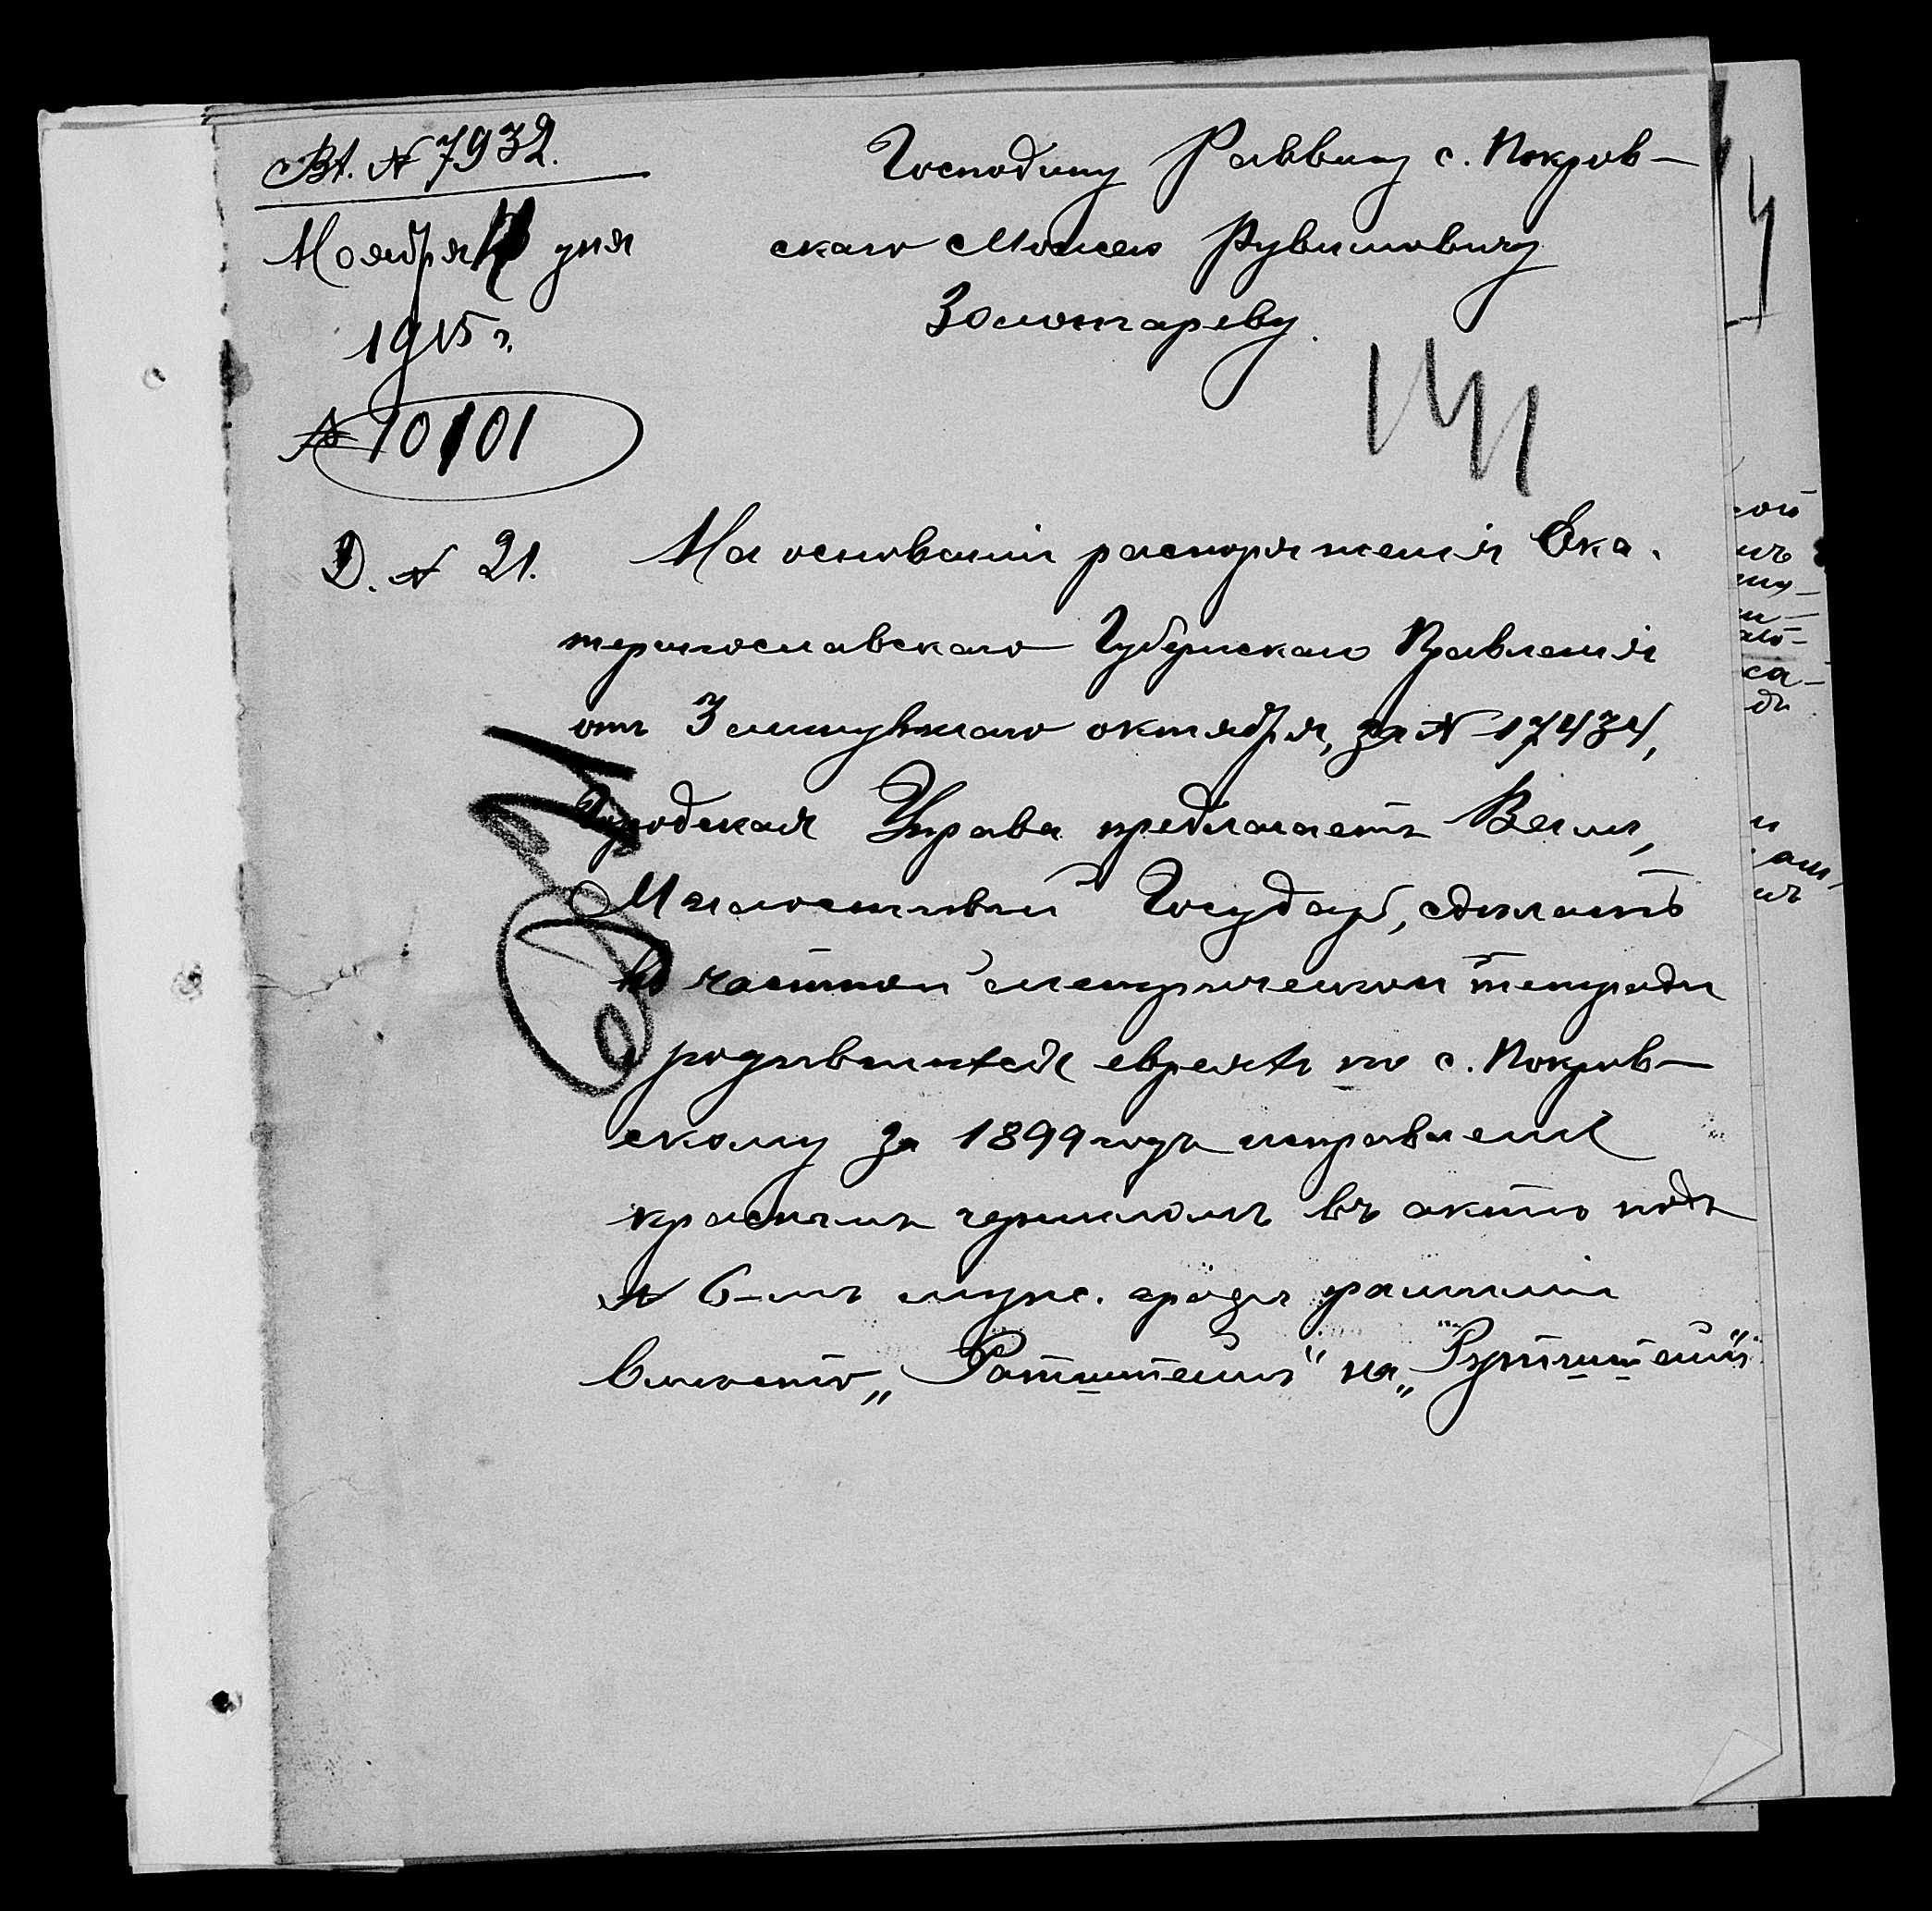 Вх. № 7932.
Ноября дня
1915 г.
№ 10101
Д. № 21.
Господину Раввину с. Покров-
скаго Моисею Рувимовичу
Золотареву.
На основаніи распоряженія Ека-
теринославскаго Губернскаго Правленія
отъ 3 минувшаго октября, за № 17434,
Городская Управа предлагаетъ Вамъ,
Милостивый Государь, сдѣлать
въ частной метрической тетради
родившихся евреевъ по с. Покров-
скому за 1899 годъ исправленіе
красными чернилами въ актѣ подъ
№ 6-мъ мужс. графы фамиліи
вмѣсто „Ратштейнъ" на „Рутштейнъ"